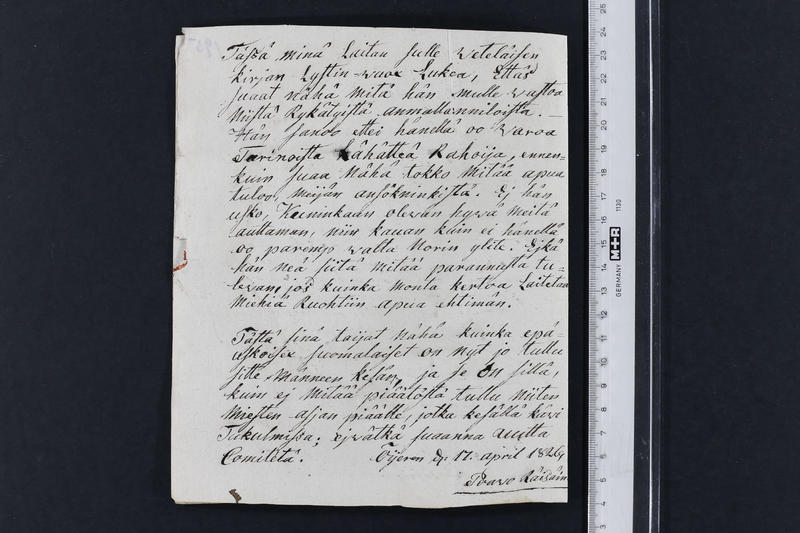 Tässä minä Laitan sulle Weteläisen
kirjan Lystin-wuox Lukea, Ettäs
suaat nähä Mitä hän mulle wastoa
Niistä Rykätyistä anmallanniloista. —
Hän sanoo ettei hänellä oo Waroa
Tarinoista Kähätteä Rahoija, ennen=
kuin suaa Nähä tokko Mitää apua
tuloo, Meijän ansökninkistä. Ej hän
usko, Kuninkaan olewan hywä Meitä
auttaman, niin kauan kuin ei hänellä
oo paremp walta Norin ylite. Eikä
hän neä siitä mitää parannusta tu=
lewan, jos kuinka Monta kertoa Laitetaa
Miehiä Ruohtiin apua ehtimän.
Tästä sinä taijat Nähä kuinka epä=
uskoisex suomalaiset on nyt jo tullu
sitte Männeen kesän, ja se On sillä,
kuin ej Mitää piäätöstä tullu Niiten
Miesten asjan piäätte, jotka kesällä käwi
Tukulmissa; ejwätkä suaanna Auttaa
Comitetä.
Öijeren d. 17. april 1826
Poawo Räisäin
25
24
23
22
21
20
19
18
17
16
15
14
13
12
11
10
9
8
7
6
5
4
3
GERMANY M+R 1130